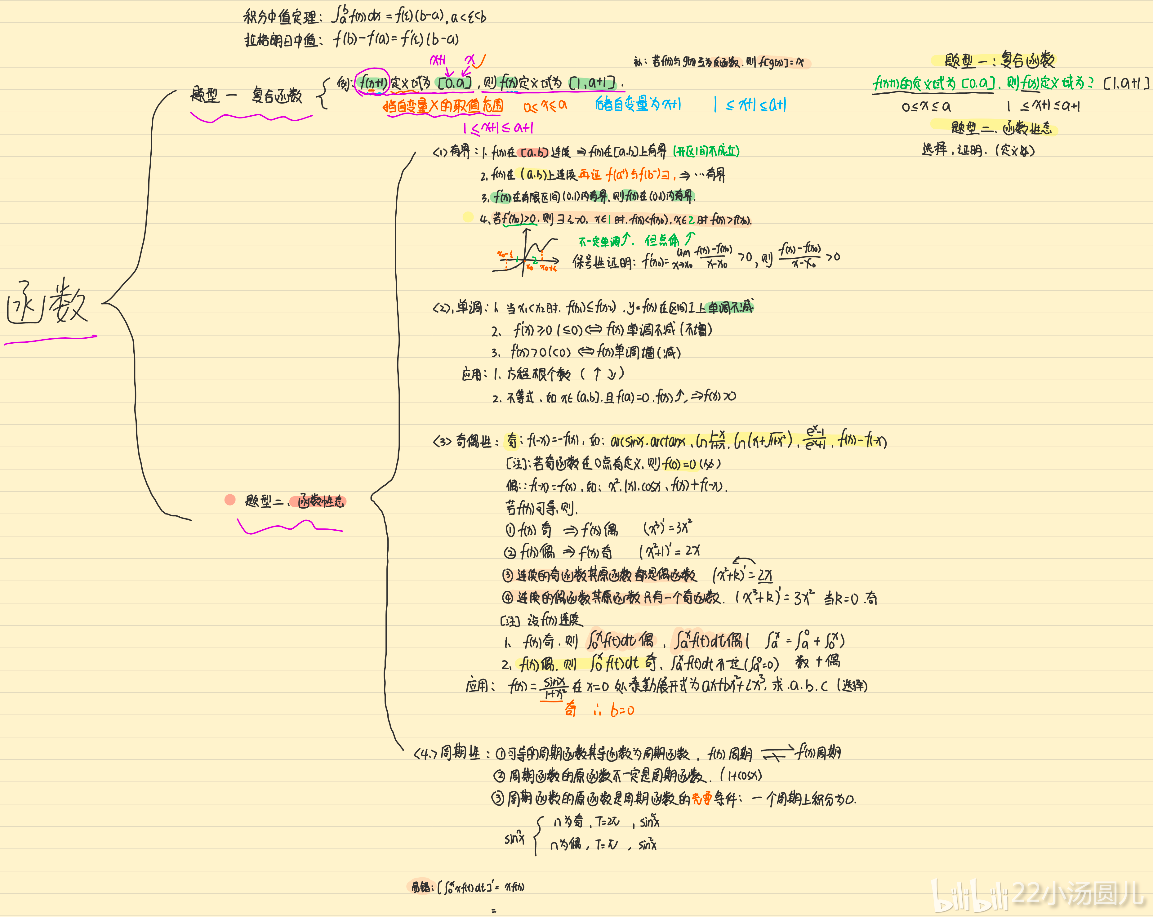 积分中值定理: ∫ₐᵇf(x)dx = f(ξ)(b-a), a<ξ<b
拉格朗日中值: f(b)-f(a)=f'(ξ)(b-a)
函数
题型一 复合函数
x+1 x
补: 若f(x)与g(x)互为反函数, 则f[g(x)]=x
例: f(x+1)定义域为 [0,a], 则f(x)定义域为 [1,a+1].
指自变量x的取值范围 0≤x≤a 指自变量为x+1 1≤x+1≤a+1
1≤x+1≤a+1
题型一: 复合函数
f(x+1)的定义域为[0,a], 则f(x)定义域为? [1,a+1]
0≤x≤a 1≤x+1≤a+1
题型二、函数性态
选择, 证明. (定义域)
题型二、函数性态
<1>有界: 1. f(x)在[a,b]连续 ⇒ f(x)在[a,b]上有界 (开区间不成立)
2. f(x)在(a,b)上连续 再证 f(a⁺)与f(b⁻)∃, ⇒ …有界
3. f'(x)在有限区间(0,1)内有界, 则f(x)在(0,1)内有界.
4. 若f'(x₀)>0, 则∃δ>0, x∈1时, f(x)<f(x₀), x∈2时f(x)>f(x₀).
不一定单调↑, 但点值↑
x₀-δ 1 2 x₀ x₀+δ
保号性证明: f'(x₀)=lim x→x₀ (f(x)-f(x₀))/(x-x₀) >0, 则 (f(x)-f(x₀))/(x-x₀) >0
<2>, 单调: 1. 当x₁<x₂时, f(x₁)≤f(x₂), y=f(x)在区间I上单调不减
2. f'(x)≥0(≤0) ⇔ f(x)单调不减(不增)
3. f'(x)>0(<0) ⇔ f(x)单调增(减)
应用: 1. 方程根个数 (↑↓)
2. 不等式, 如x∈(a,b], 且f(a)=0, f(x)↑, ⇒f(x)>0
<3>奇偶性: 奇: f(-x)=-f(x), 如: arcsinx, arctanx, ln(1-x)/(1+x), ln(x+√(1+x²)), (eˣ-1)/(eˣ+1), f(x)-f(-x)
[注]: 若奇函数在0点有定义, 则f(0)=0 (必)
偶: f(-x)=f(x), 如: x², |x|, cosx, f(x)+f(-x).
若f(x)可导, 则.
① f(x)奇 ⇒ f'(x)偶 (x³)'=3x²
② f(x)偶 ⇒ f'(x)奇 (x²+1)'=2x
③ 连续的奇函数其原函数都是偶函数 (x²+k)'=2x
④ 连续的偶函数其原函数只有一个奇函数. (x³+k)'=3x² 当k=0, 奇
[注] 设f(x)连续
1. f(x)奇, 则 ∫₀ˣf(t)dt偶, ∫ₐˣf(t)dt偶( ∫ₐˣ=∫ₐ⁰+∫₀ˣ)
2. f(x)偶, 则 ∫₀ˣf(t)dt 奇, ∫ₐˣf(t)dt不定(∫ₐ⁰=0) 数+偶
应用: f(x)=sinx/(1+x²) 在x=0处泰勒展开式为ax+bx²+cx³, 求a.b.c (选择)
奇 ∴ b=0
<4>周期性: ①可导的周期函数其导函数为周期函数, f(x)周期 ⇌ f'(x)周期
②周期函数的原函数不一定是周期函数, (1+cosx)
③周期函数的原函数是周期函数的充要条件: 一个周期上积分为0.
sinⁿx { n为奇, T=2π, sin³x
n为偶, T=π, sin²x
易错: [∫₀ˣxf(t)dt]'= xf(x)
=
bilibili 22小汤圆儿